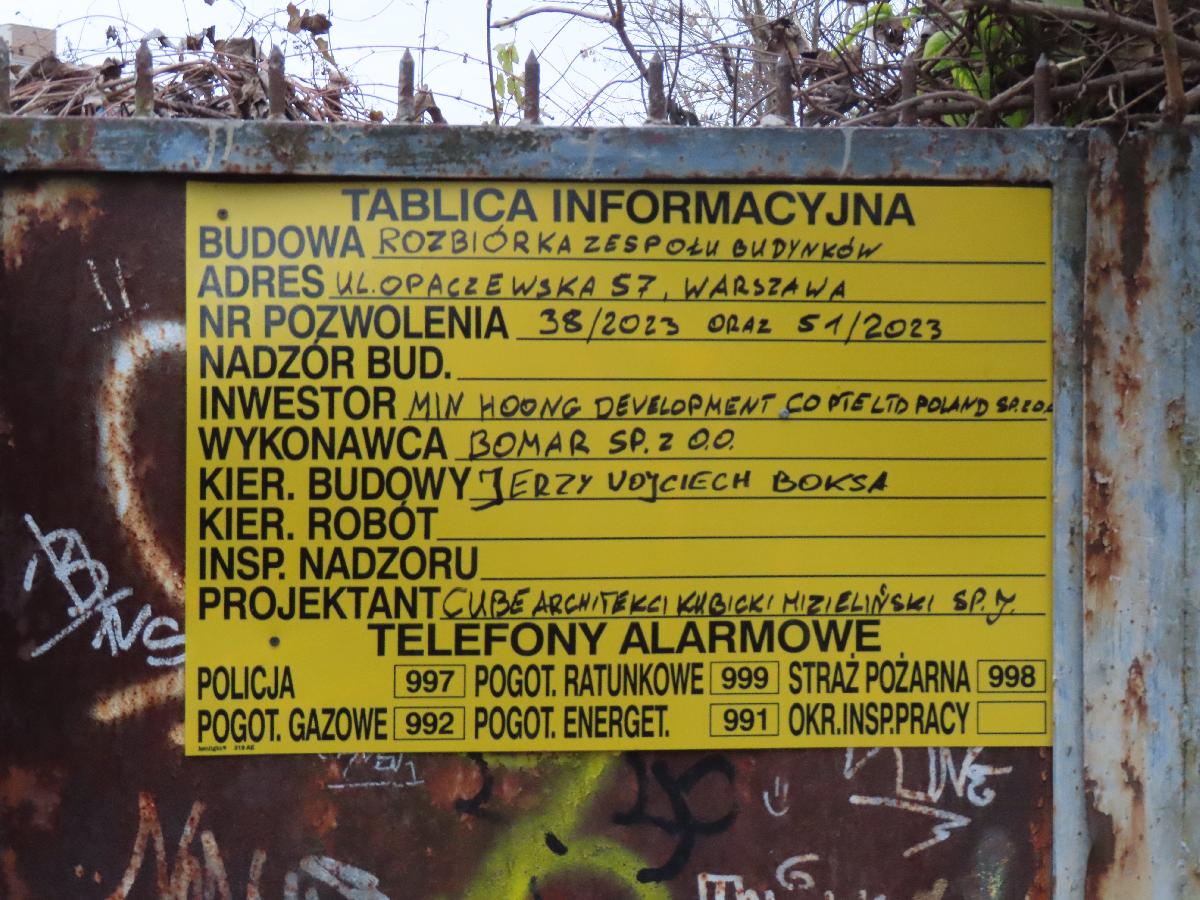 TABLICA INFORMACYJNA
BUDOWA ROZBIÓRKA ZESPOŁU BUDYNKÓW
ADRES UL. OPACZEWSKA 57, WARSZAWA
NR POZWOLENIA 38/2023 ORAZ 51/2023
NADZÓR BUD.
INWESTOR MIN HOONG DEVELOPMENT CO PTE LTD POLAND SP. Z O.O.
WYKONAWCA BOMAR SP. Z O.O.
KIER. BUDOWY JERZY WOJCIECH BOKSA
KIER. ROBÓT
INSP. NADZORU
PROJEKTANT CUBE ARCHITEKCI KUBICKI MIZIELIŃSKI SP. J.
TELEFONY ALARMOWE
POLICJA 997 POGOT. RATUNKOWE 999 STRAŻ POŻARNA 998
POGOT. GAZOWE 992 POGOT. ENERGET. 991 OKR.INSP.PRACY